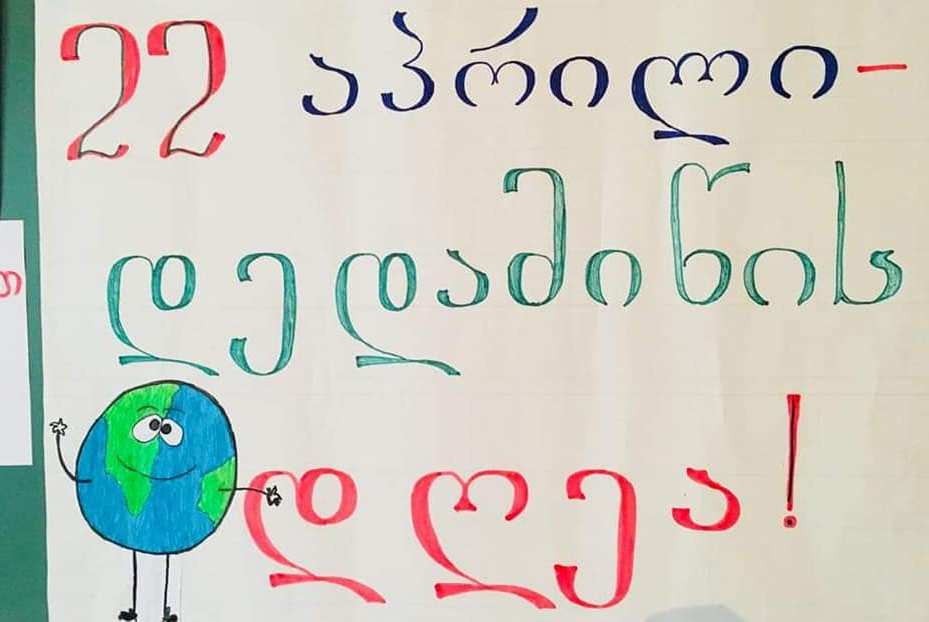 22 აპრილი-
დედამიწის
დღეა!